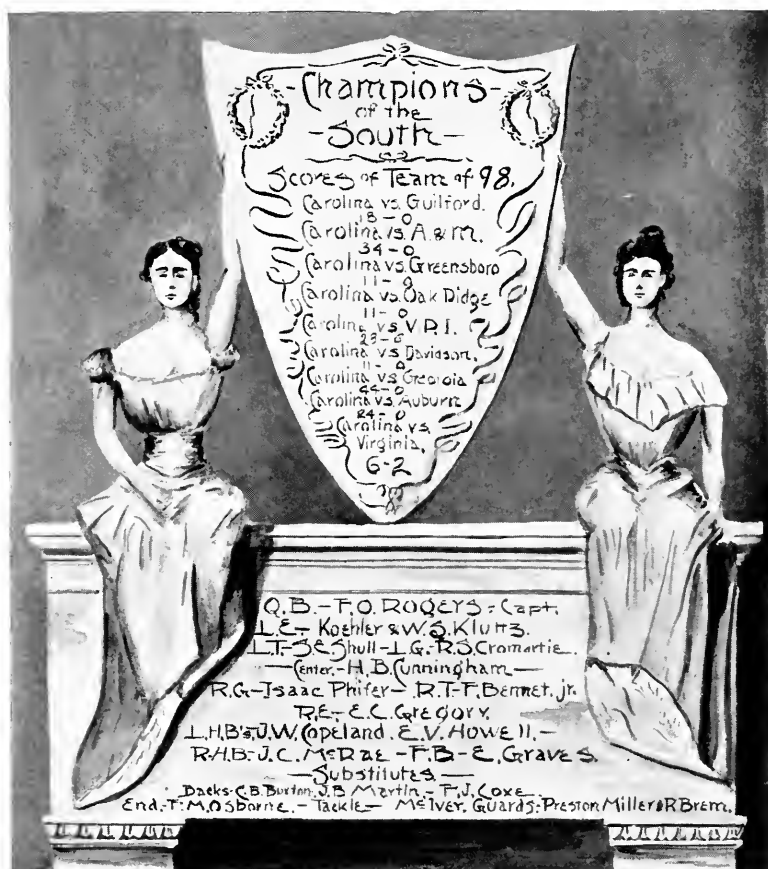 -Champions-
of the
-South-
Scores of Team of 98.
Carolina vs. Guilford.
18-0
Carolina vs. A & M.
34-0
Carolina vs. Greensboro
11-0
Carolina vs. Oak Didge
11-0
Carolina vs. V.P.I.
23-0
Carolina vs Davidson.
11-0
Carolina vs Georgia
44-0
Carolina vs. Auburn
24-0
Carolina vs.
Virginia,
6-2
Q.B.-F.O. ROGERS-Capt.
L.E.- Koehler & W.S. Kluttz.
L.T.-S.E Shull-L.G.-R.S. Cromartie.
-Center.-H.B. Cunningham-
R.G-Isaac Phifer- R.T-F. Bennet, jr.
R.E.-E.C. Gregory.
L.H.B's.J.W. Copeland. E.V. Howell.-
R.H.B-J.C. McRae-F.B-E. Graves.
-Substitutes-
Backs-C.B. Burton. J.B Martin.- F.J. Coxe.
End.-F.M. Osborne.-Tackle- McIver. Guards:-Preston Miller & R Brem.